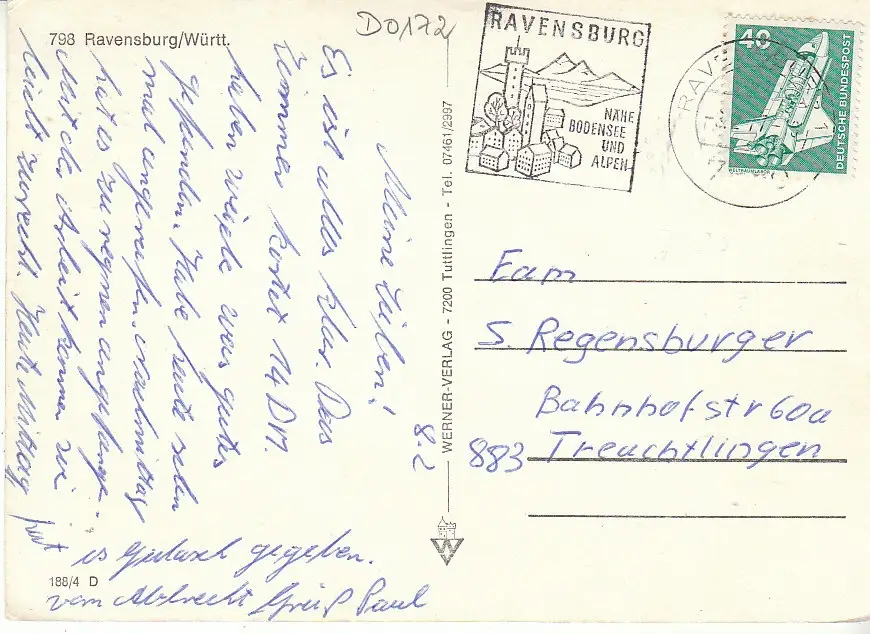 798 Ravensburg/Württ.
D0172
RAVENSBURG
NÄHE
BODENSEE
UND
ALPEN
40
DEUTSCHE BUNDESPOST
WELTRAUMLABOR
8.2
Meine Lieben!
Es ist alles klar. Das
Zimmer kostet 14 DM.
haben wieder was gutes
gefunden. Habe heute schon
mal angerufen. Nachmittag
hat es zu regnen angefangen.
Mit der Arbeit kommen wir
leicht zurecht. Heute Mittag
hat
es Gulasch gegeben.
vom Albrecht Gruß Paul
WERNER-VERLAG - 7200 Tuttlingen - Tel. 07461/2997
Fam
S. Regensburger
Bahnhofstr 60a
883 Treuchtlingen
188/4 D